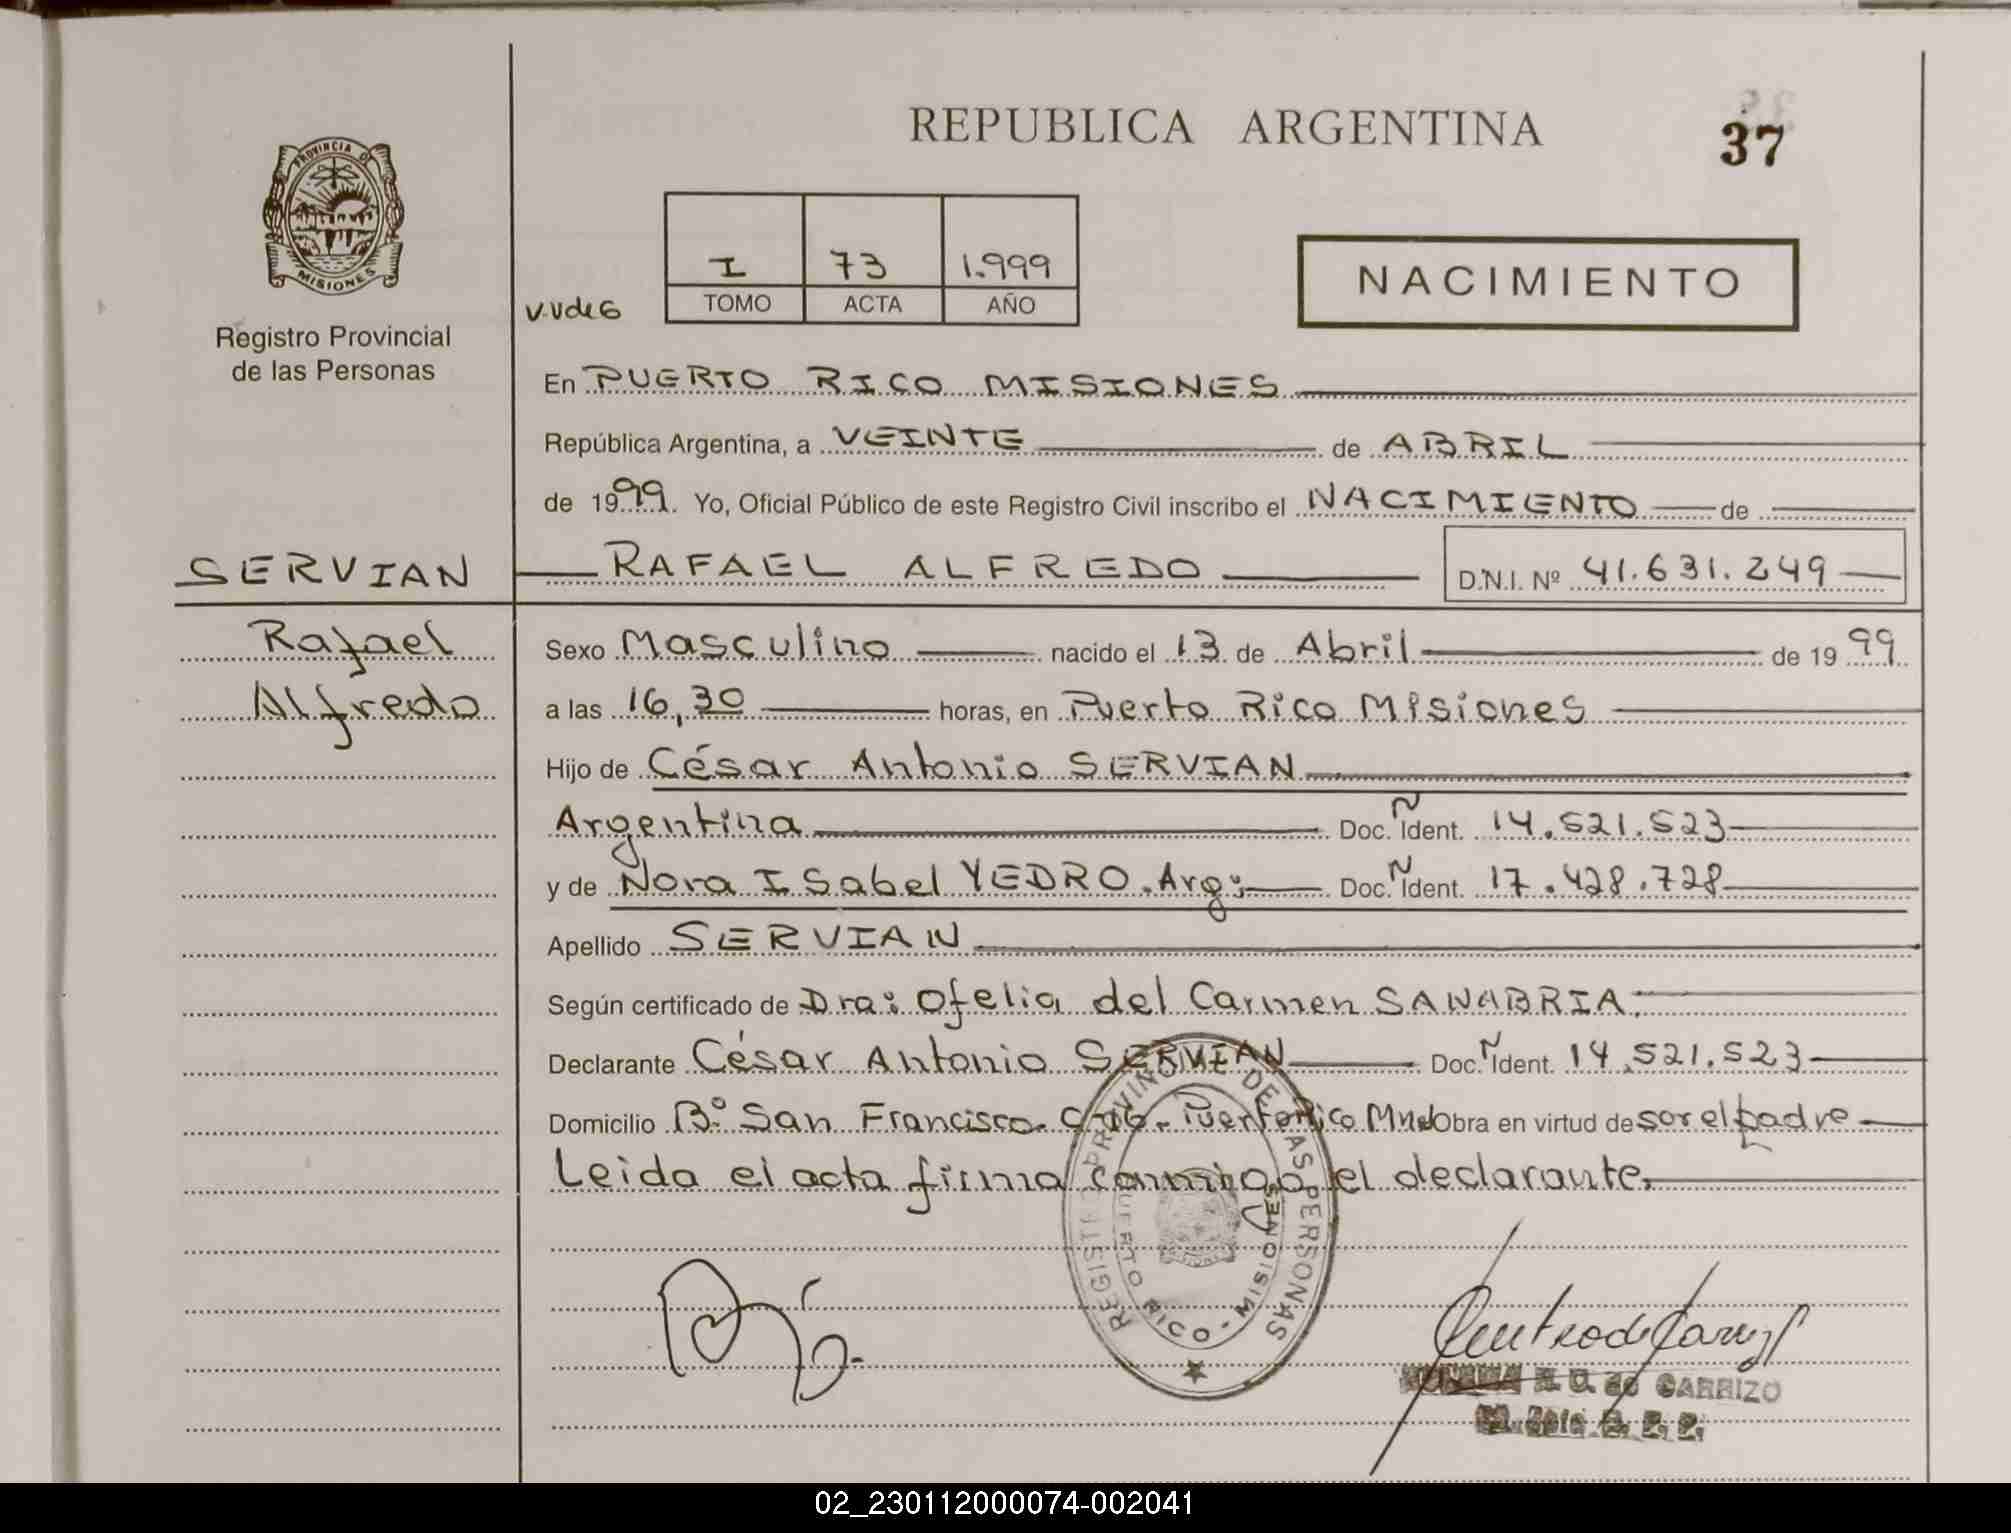 REPUBLICA ARGENTINA
37
PROVINCIA DE
MISIONES
Registro Provincial
de las Personas
I 73 1.999
TOMO ACTA AÑO
NACIMIENTO
En PUERTO RICO MISIONES
República Argentina, a VEINTE de ABRIL
de 1999. Yo, Oficial Público de este Registro Civil inscribo el NACIMIENTO de
SERVIAN RAFAEL ALFREDO D.N.I. Nº 41.631.249
Rafael
Alfredo
Sexo Masculino nacido el 13 de Abril de 1999
a las 16,30 horas, en Puerto Rico Misiones
Hijo de César Antonio SERVIAN
Argentina Doc. Ident. 14.521.523
y de Nora Isabel YEDRO. Arg: Doc. Ident. 17.428.728
Apellido SERVIAN
Según certificado de Dra: Ofelia del Carmen SANABRIA.
Declarante César Antonio SERVIAN Doc. Ident. 14.521.523
Domicilio Bº San Francisco. Puerto Rico Obra en virtud de ser el padre
Leida el acta firma conmigo el declarante.
REGISTRO PROVINCIAL DE LAS PERSONAS
PUERTO RICO - MISIONES
de CARRIZO
02_230112000074-002041